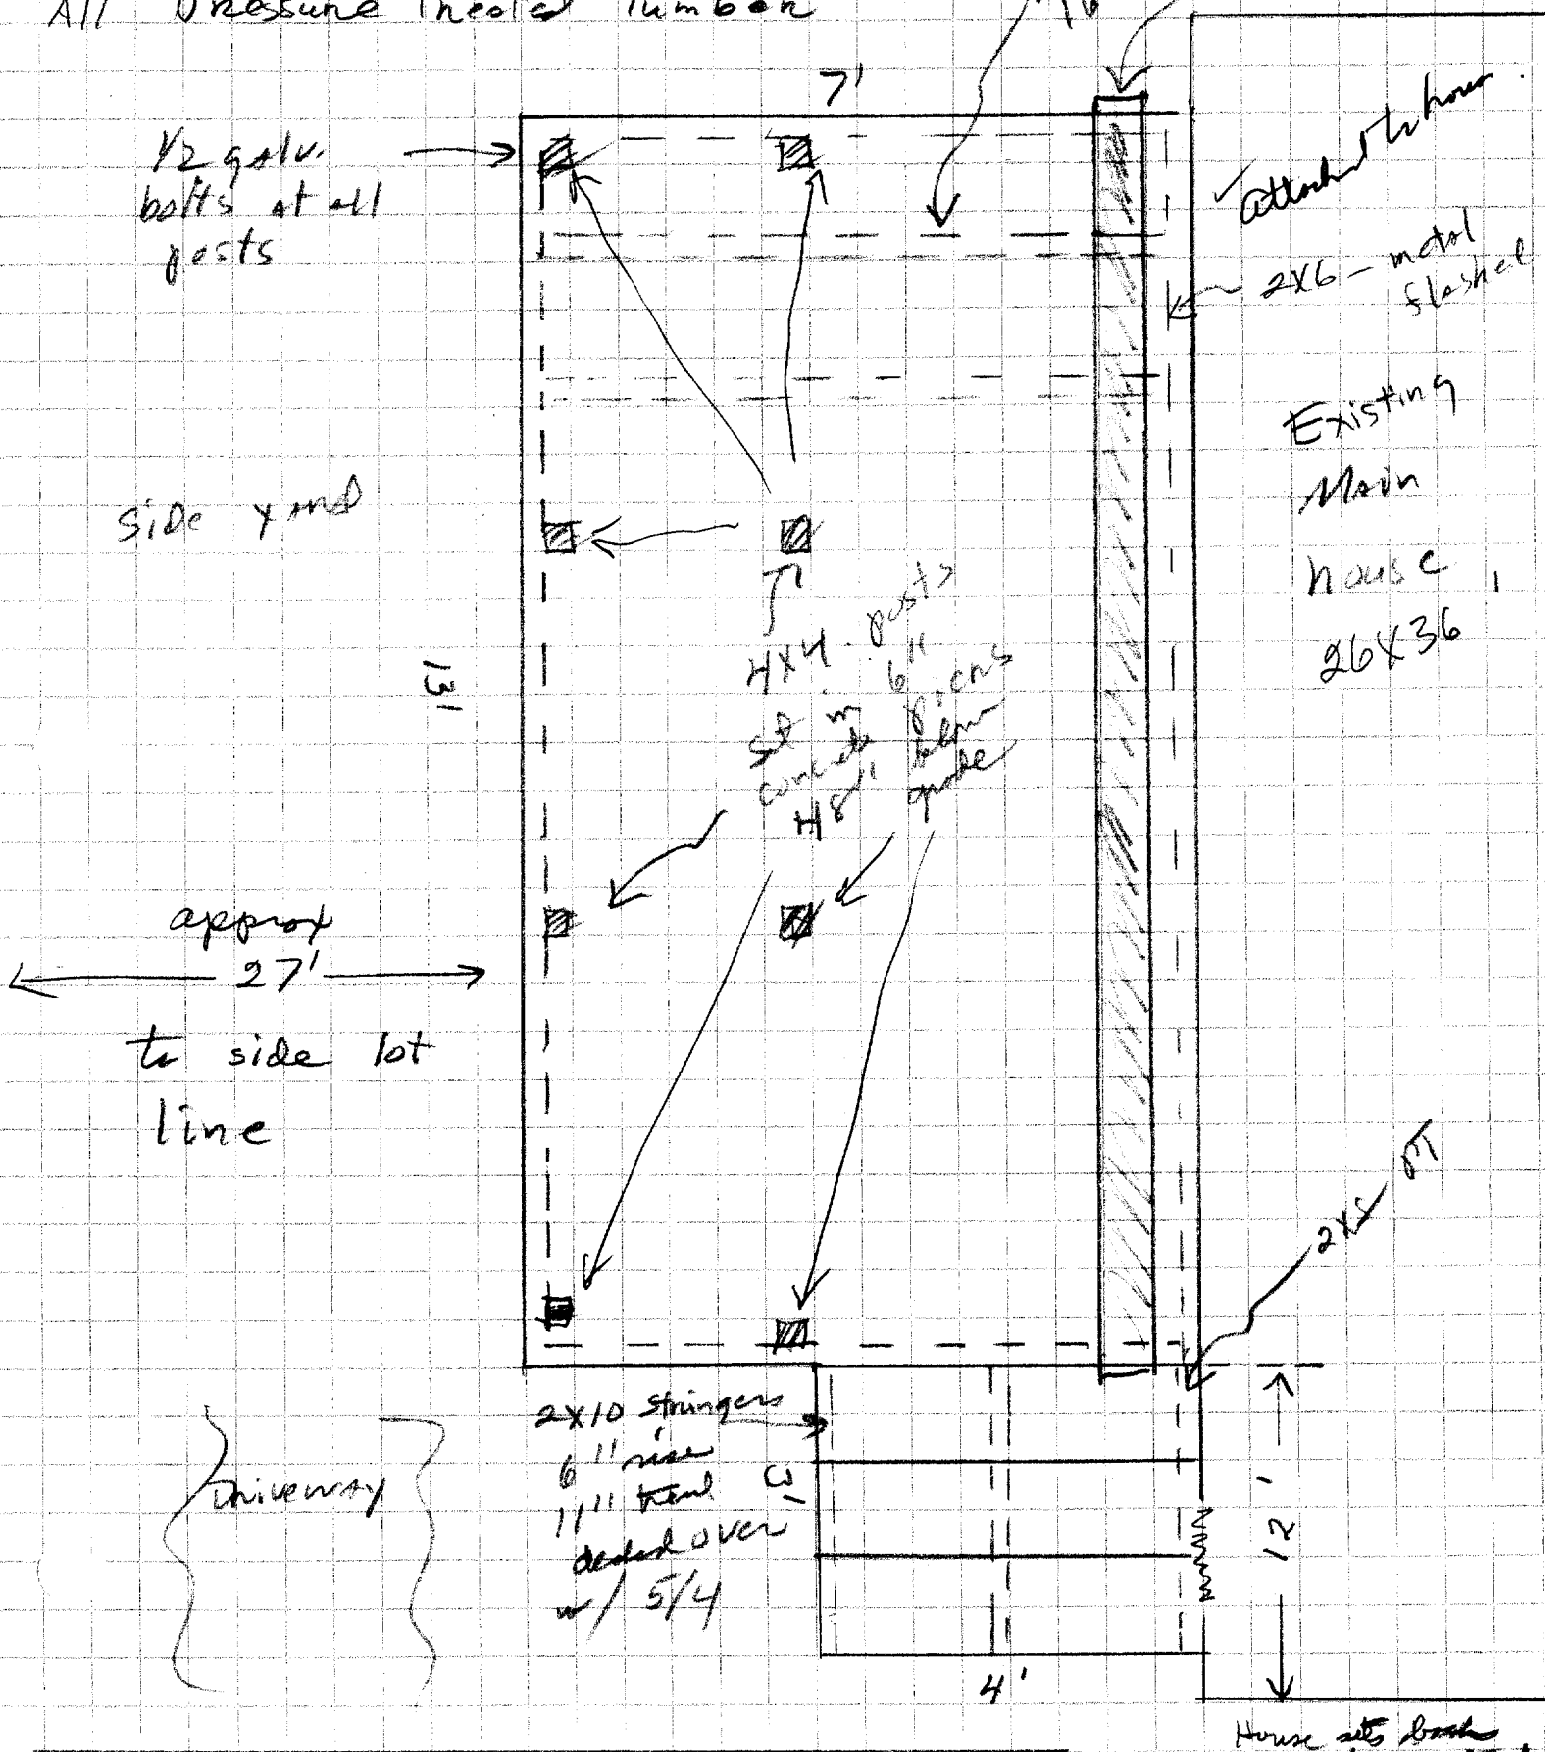 All Pressure Treated lumber
16
7'
1/2 galv.
bolts at all
posts
attached to house.
2X6 - metal
flashed
Existing
Main
house
26X36'
Side yard
13'
4X4 posts
set in 6"
concrete piers
48" below
grade
approx
27'
to side lot
line
2X8 PT
2X10 stringers
6" rise
11" tread
decked over
w/ 5/4
3'
Driveway
12'
4'
House sets back